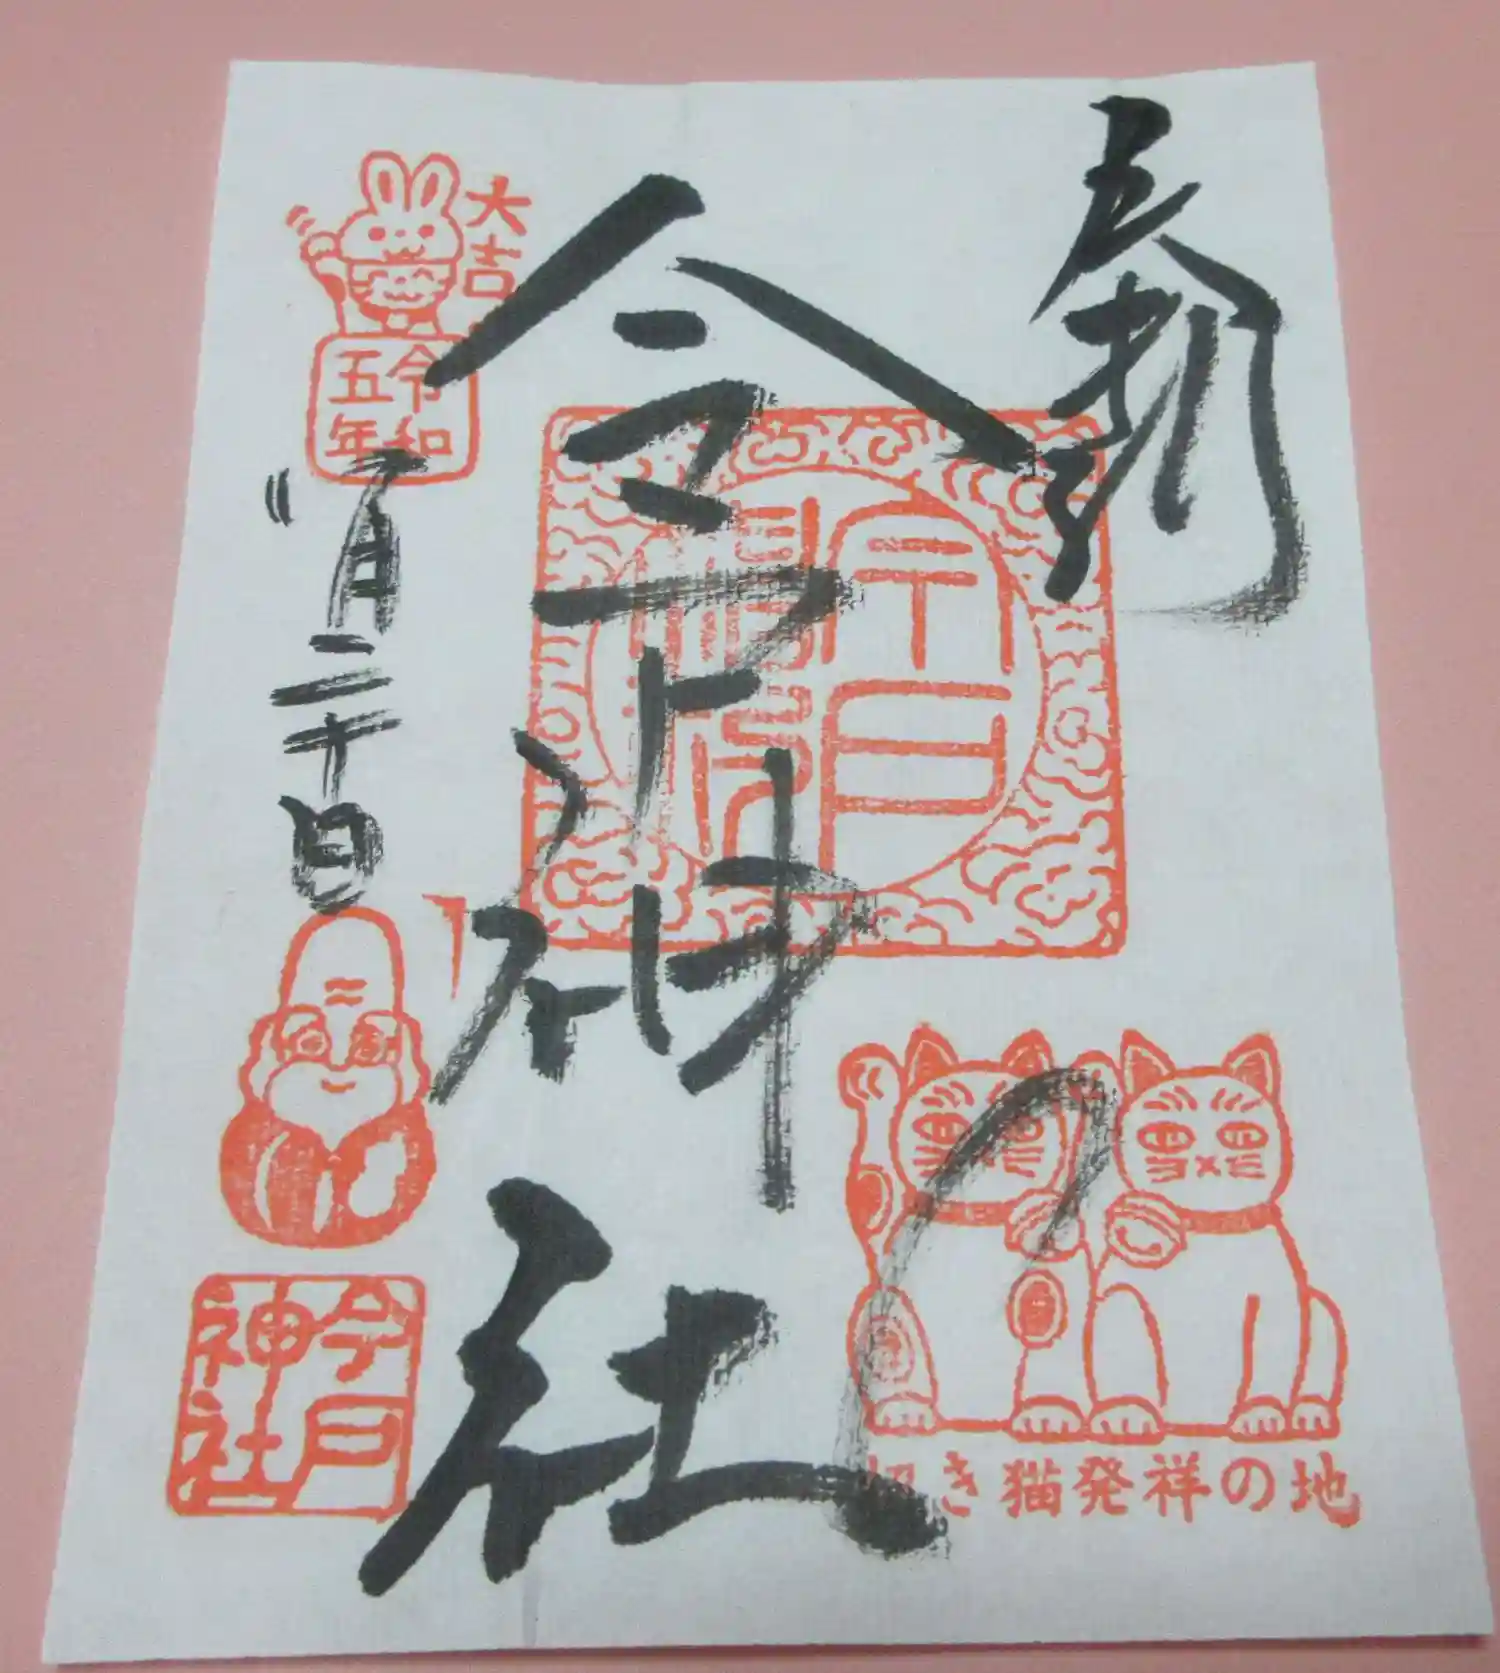 奉拝
今戸神社
大吉
令和
五年
月二十日
今戸
神社
招き猫発祥の地